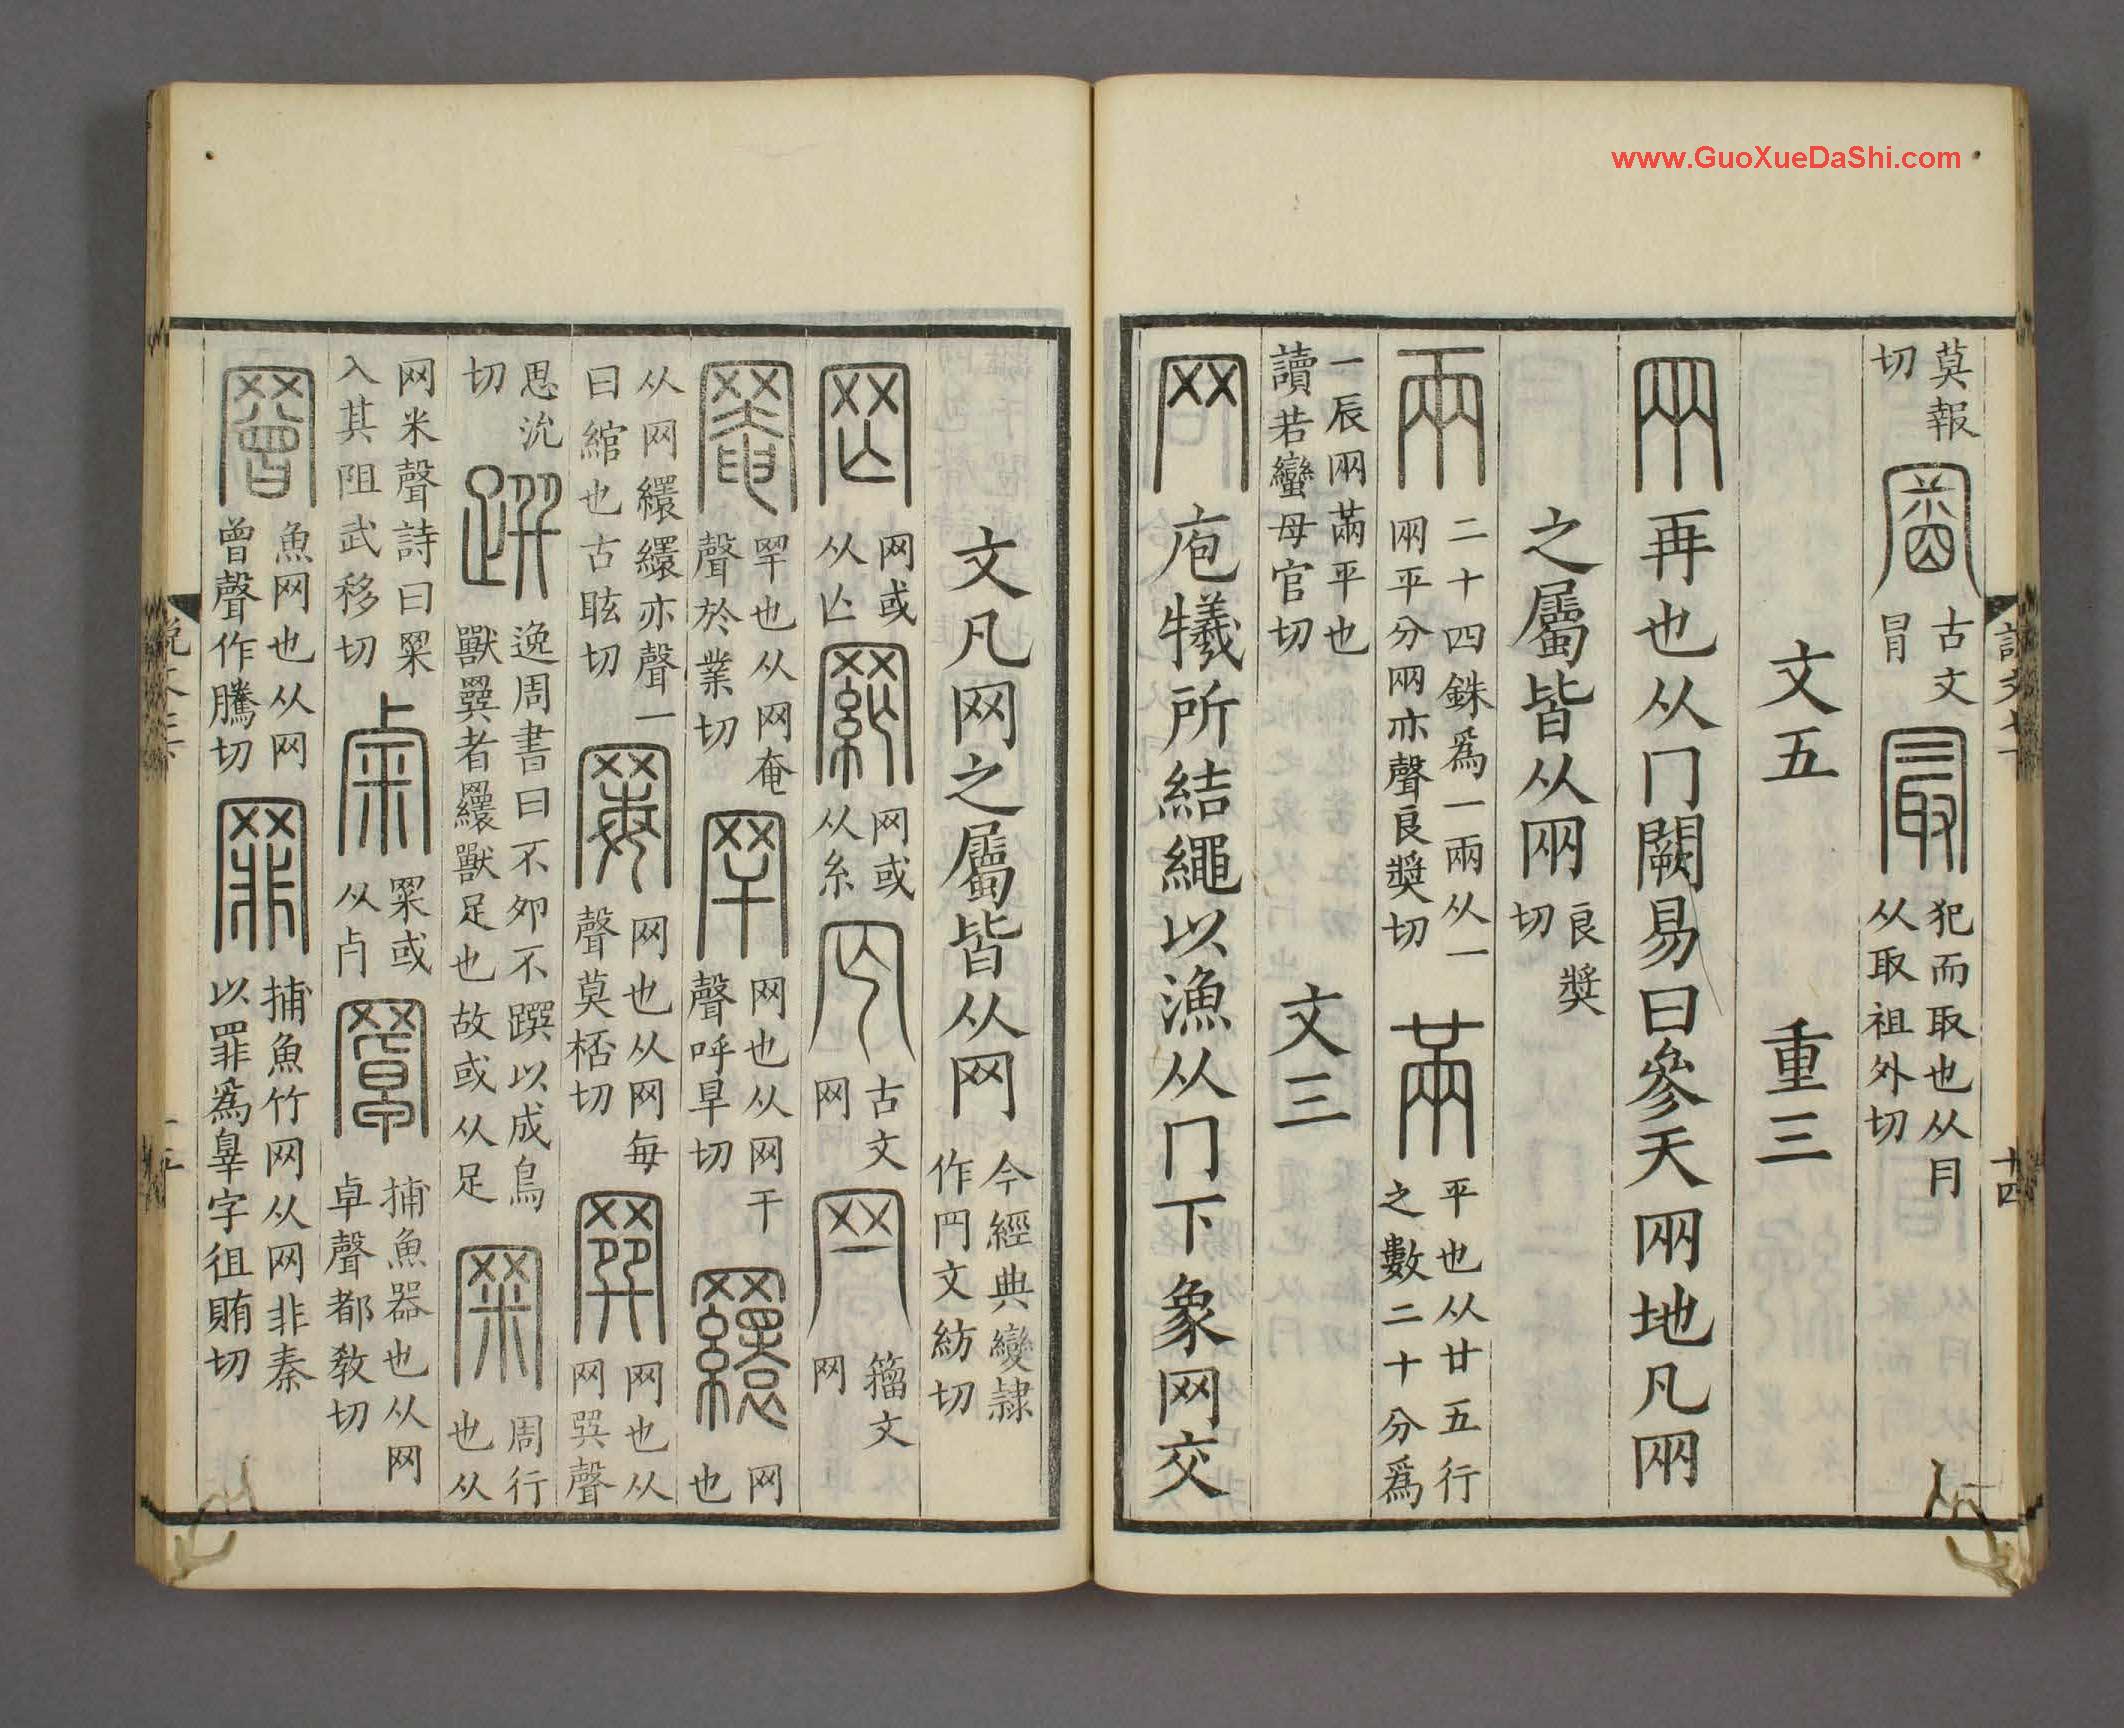 www.GuoXueDaShi.com
莫報切 𠔼 古文冒 最 犯而取也从冃从取祖外切
文五 重三
㒳 再也从冂闕易曰參天㒳地凡㒳
之屬皆从㒳 良奬切
兩 二十四銖爲一兩从一㒳平分㒳亦聲良奬切 㒼 平也从廿五行之數二十分爲
一辰㒳㒼平也讀若蠻母官切 文三
网 庖犧所結繩以漁从冂下象网交
十四
文凡网之屬皆从网 今經典變隸作罓文紡切
罔 网或从亡 網 网或从糸 古文网 籀文网
罨 罕也从网奄聲於業切 罕 网也从网干聲呼旱切 繯 网也
从网繯繯亦聲一曰綰也古眩切 网也从网每聲莫桮切 网也从网巽聲
思沇切 逸周書曰不夘不䠣以成鳥獸巽者繯獸足也故或从足 罙 周行也从
网米聲詩曰罙入其阻武移切 罙或从占 罩 捕魚器也从网卓聲都敎切
罾 魚网也从网曾聲作騰切 罪 捕魚竹网从网非秦以罪爲辠字徂賄切